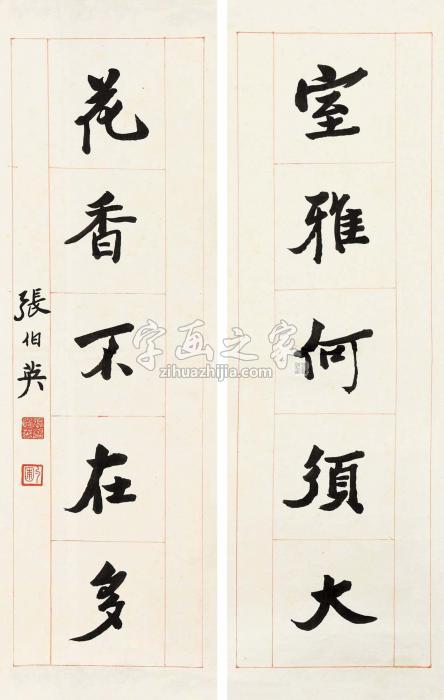 室雅何須大
花香不在多
張伯英
字画之家
zihuazhijia.com